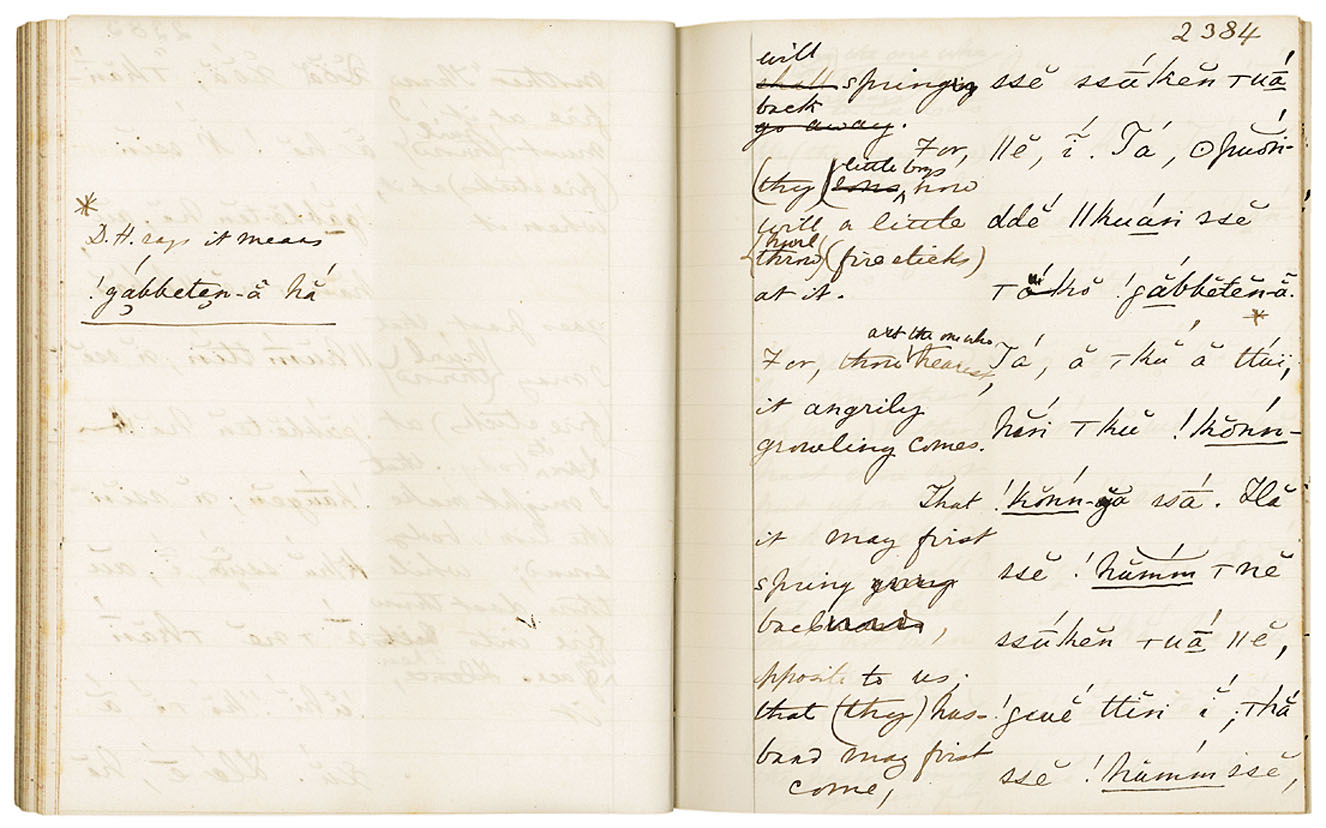 *
D. H. says it means
!gábbeten-ā hā́
2384
will
shall springing ssĕ ssū́kĕn ⊤uā́
back
go away.
For, ǁĕ, ī́. Tá, ʘpuŏ́n-
little boys
(they) sons, now
will a little ddĕ́ ǁkuā́n ssĕ
(hurl
throw) (fire sticks)
at it. !gábbĕtĕn-ā.
*
art the one who
For, thou hearest, Tá, ā ⊤kŭ́ ā ttúï,
it angrily
growling comes. hăń ⊤kŭ !kŏ́nn-
That !kŏ́nn-ya ssā́. Hă
it may first
spring going ssĕ !hŭ́mm ⊤nĕ
backwards,
ssū́kĕn ⊤uā́ ǁĕ,
opposite to us;
that (thy) hus- !gwĕ́ ttĭ́n ī́; ⊤hā́
band may first
come, ssĕ !hŭ́mm ssĕ,